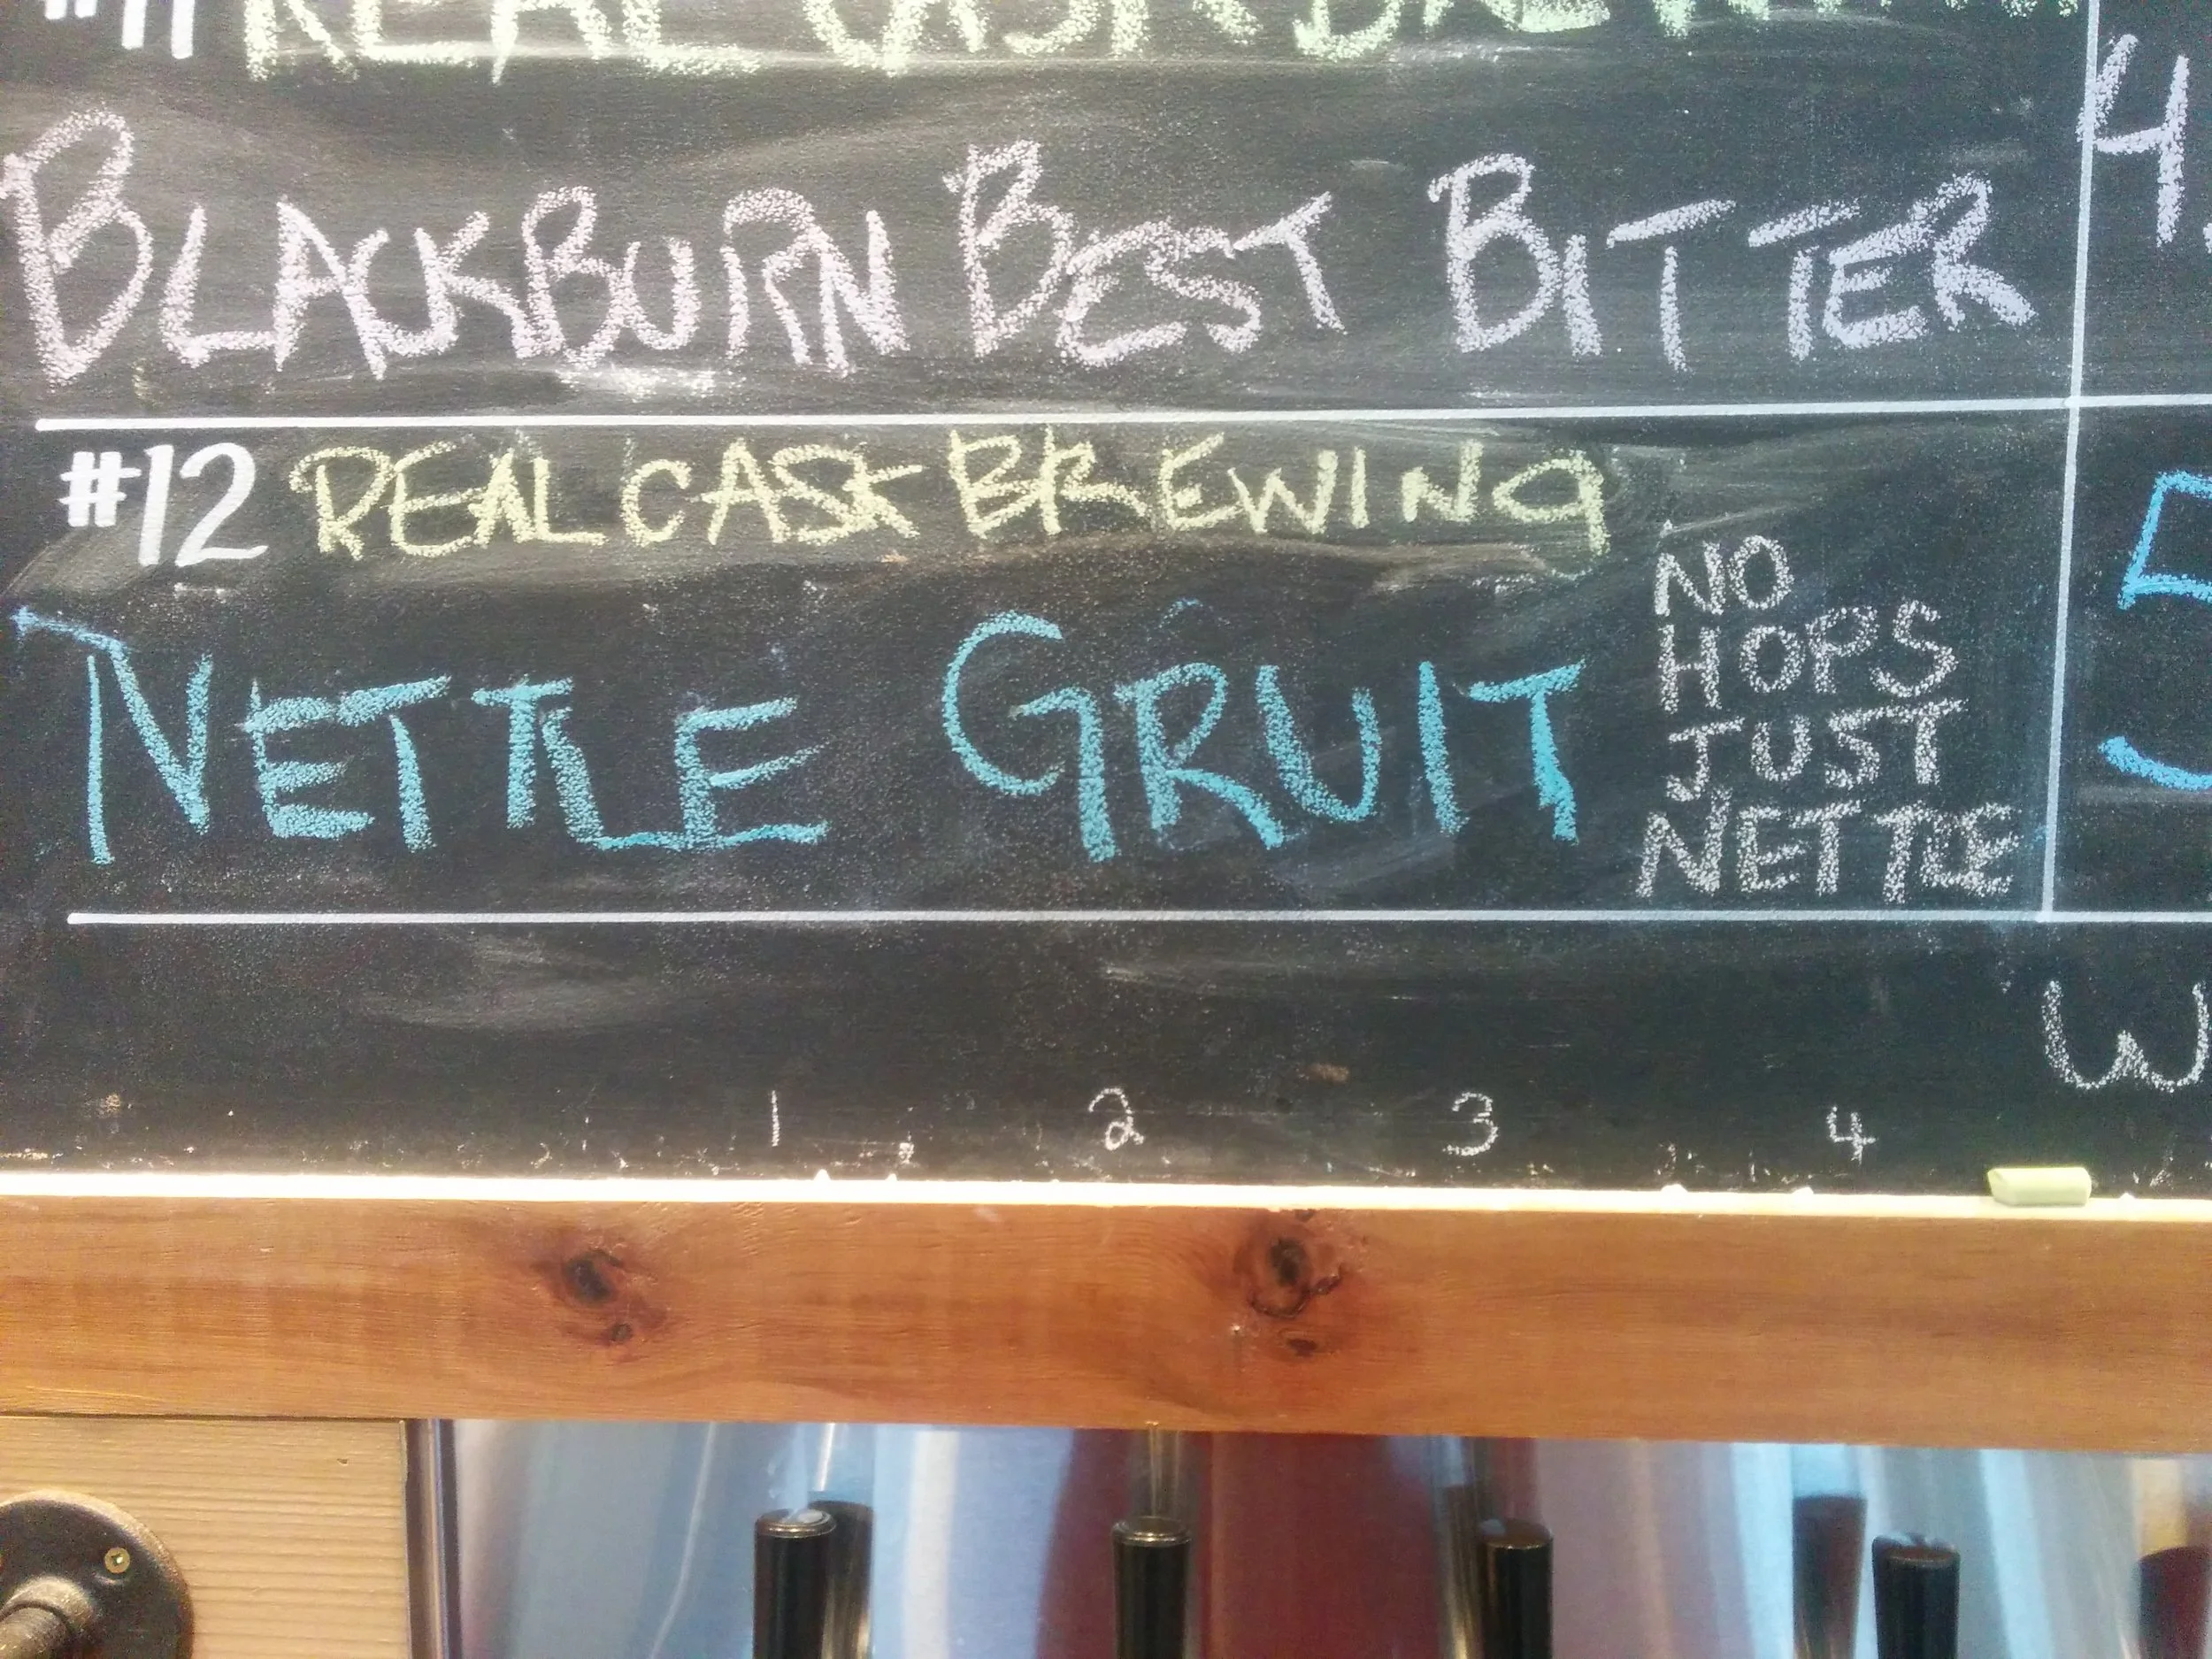 #11 REAL CASK BREWING
BLACKBURN BEST BITTER
4.
#12 REAL CASK BREWING
NETTLE GRUIT
NO
HOPS
JUST
NETTLE
5
W
1 2 3 4